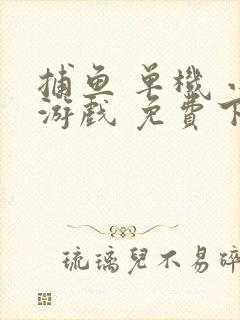 捕鱼单機
游戲 免費下
琉璃兒不易碎